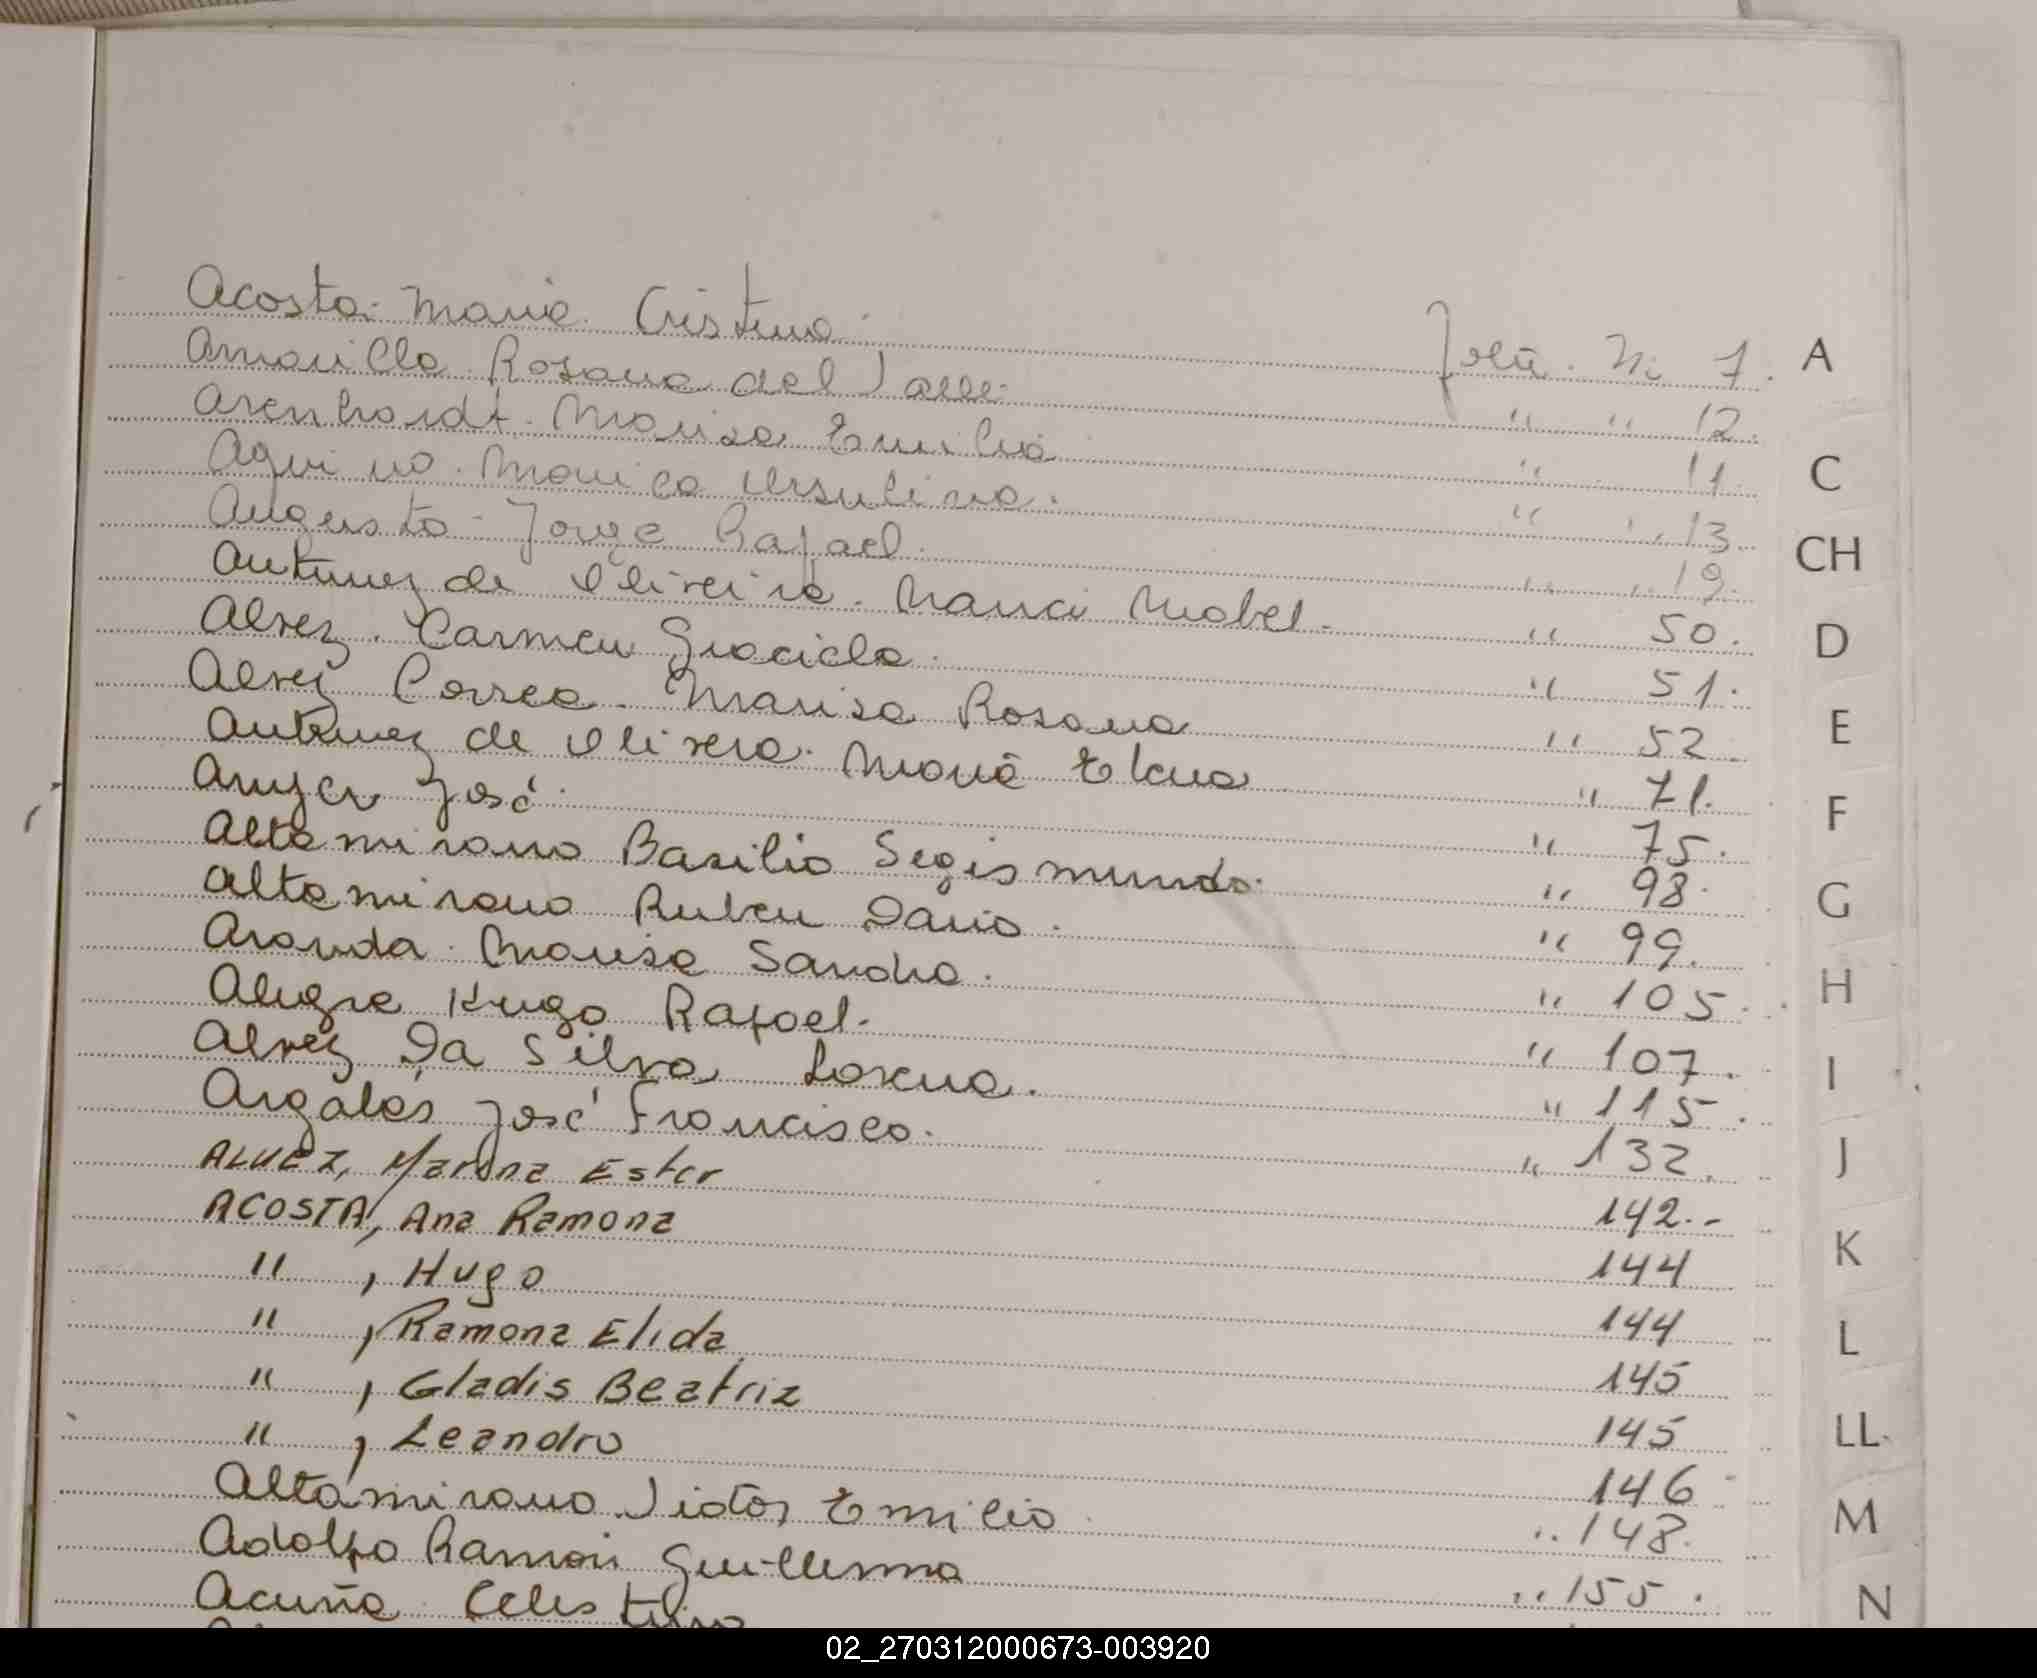 Acosta. Maria Cristina Folio N. 7. A
Amarilla Rosana del Valle " " 12.
Arenhardt. Marisa Emilia " 11. C
Aquino. Monica Ursulina. " " 13
Augusto - Jorge Rafael. " " 19. CH
Antunez de Oliveira. Nanci Mabel. " 50. D
Alvez. Carmen Graciela. " 51.
Alvez Correa. Marisa Rosana " 52 E
Antunez de Olivera. Maria Elena " 71.
José. " 75. F
Altamirano Basilio Segismundo. " 98.
Altamirano Ruben Dario. " 99. G
Aranda. Marisa Sandra. " 105. H
Alegre Hugo Rafael. " 107. I
Alvez Da Silva Lorena. " 115.
José Francisco. " 132. J
ALVEZ, Marina Ester 142.-
ACOSTA, Ana Ramona 144 K
" , Hugo 144
" , Ramona Elida 145 L
" , Gladis Beatriz 145
" , Leandro 146 LL
Altamirano Victor Emilio " 148. M
Adolfo Ramon Guillermo " 155.
Acuña Celestino N
02_270312000673-003920